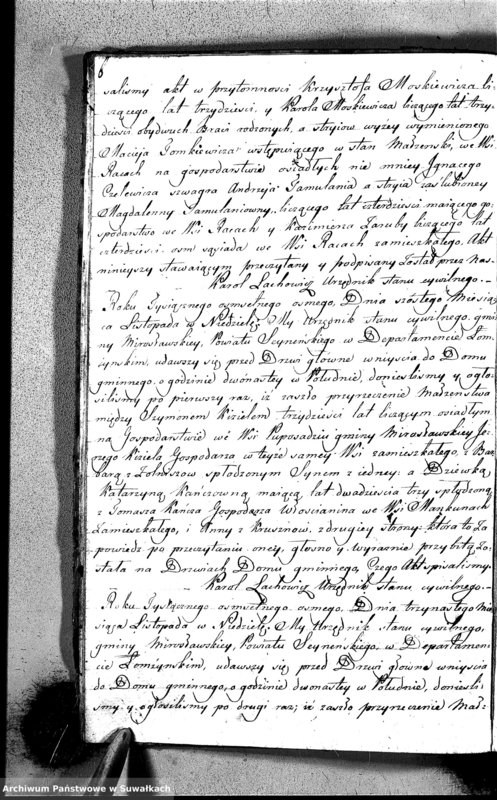 6
saliśmy akt w przytomności Krzysztofa Moskiewicza li-
czącego lat trzydzieści, y Karola Moskiewicza liczącego lat trzy-
dzieści obydwuch Braci rodzonych, a stryiow wyżey wymienionego
Macieja Tomkiewicza wstępuiącego w stan Małżenski, we Wsi
Racach na gospodarstwie osiadłych nie mniey Ignacego
Czelewicza szwagra Andrzeja Jamulania a stryia zaślubioney
Magdalenny Jamulaniowny, liczącego lat czterdzieści maiącego go-
spodarstwo we Wsi Racach y Kazimierza Zaruby liczącego lat
czterdzieści osm sąsiada we Wsi Racach zamieszkałego. Akt
ninieyszy stawaiącym przeczytany y podpisany Został przez nas —
Karol Lachowicz Urzędnik stanu cywilnego. —
Roku Tysiącznego osmsetnego osmego, Dnia szóstego Miesią-
ca Listopada w Niedzielę. My Urzędnik stanu cywilnego gmi-
ny Mirosławskiey, Powiatu Seyneńskiego w Departamencie Łom-
żynskim, udawszy się przed Drzwi głowne wniyścia do Domu
gminnego, o godzinie dwonastey w Południe, donieśliśmy y ogło-
siliśmy po pierwszy raz, iż zaszło przyrzeczenie Małżenstwa
między Szymonem Kizielem trzydzieści lat liczącym osiadłym
na Gospodarstwie we Wsi Puposadziu gminy Mirosławskiey Jo-
nego Kiziela Gospodarza w teyże samey Wsi zamieszkałego, z Bar-
barą z Zołniszow spłodzonym Synem z iedney: a Dziewką
Katarzyną Kańczowną maiącą lat dwadzieścia trzy spłodzoną
z Tomasza Kańcza Gospodarza Włościanina we Wsi Mankunach
Zamieszkałego, i Anny z Kruszniow, z drugiey strony: która to Za-
powiedź po przeczytaniu oney, głośno y wyraźnie przybitą Zo-
stała na Drzwiach Domu gminnego, Czego Akt spisaliśmy.
Karol Lachowicz Urzędnik stanu cywilnego. —
Roku Tysiącznego osmsetnego osmego, Dnia trzynastego Mie-
siąca Listopada w Niedzielę. My Urzędnik stanu cywilnego,
gminy Mirosławskiey, Powiatu Seyneńskiego, w Departamen-
cie Łomżynskim, udawszy się przed Drzwi głowne wniyścia
do Domu gminnego, o godzinie dwonastey w Południe, donieśli-
śmy y ogłosiliśmy po drugi raz; iż zaszło przyrzeczenie Mał-
Archiwum Państwowe w Suwałkach